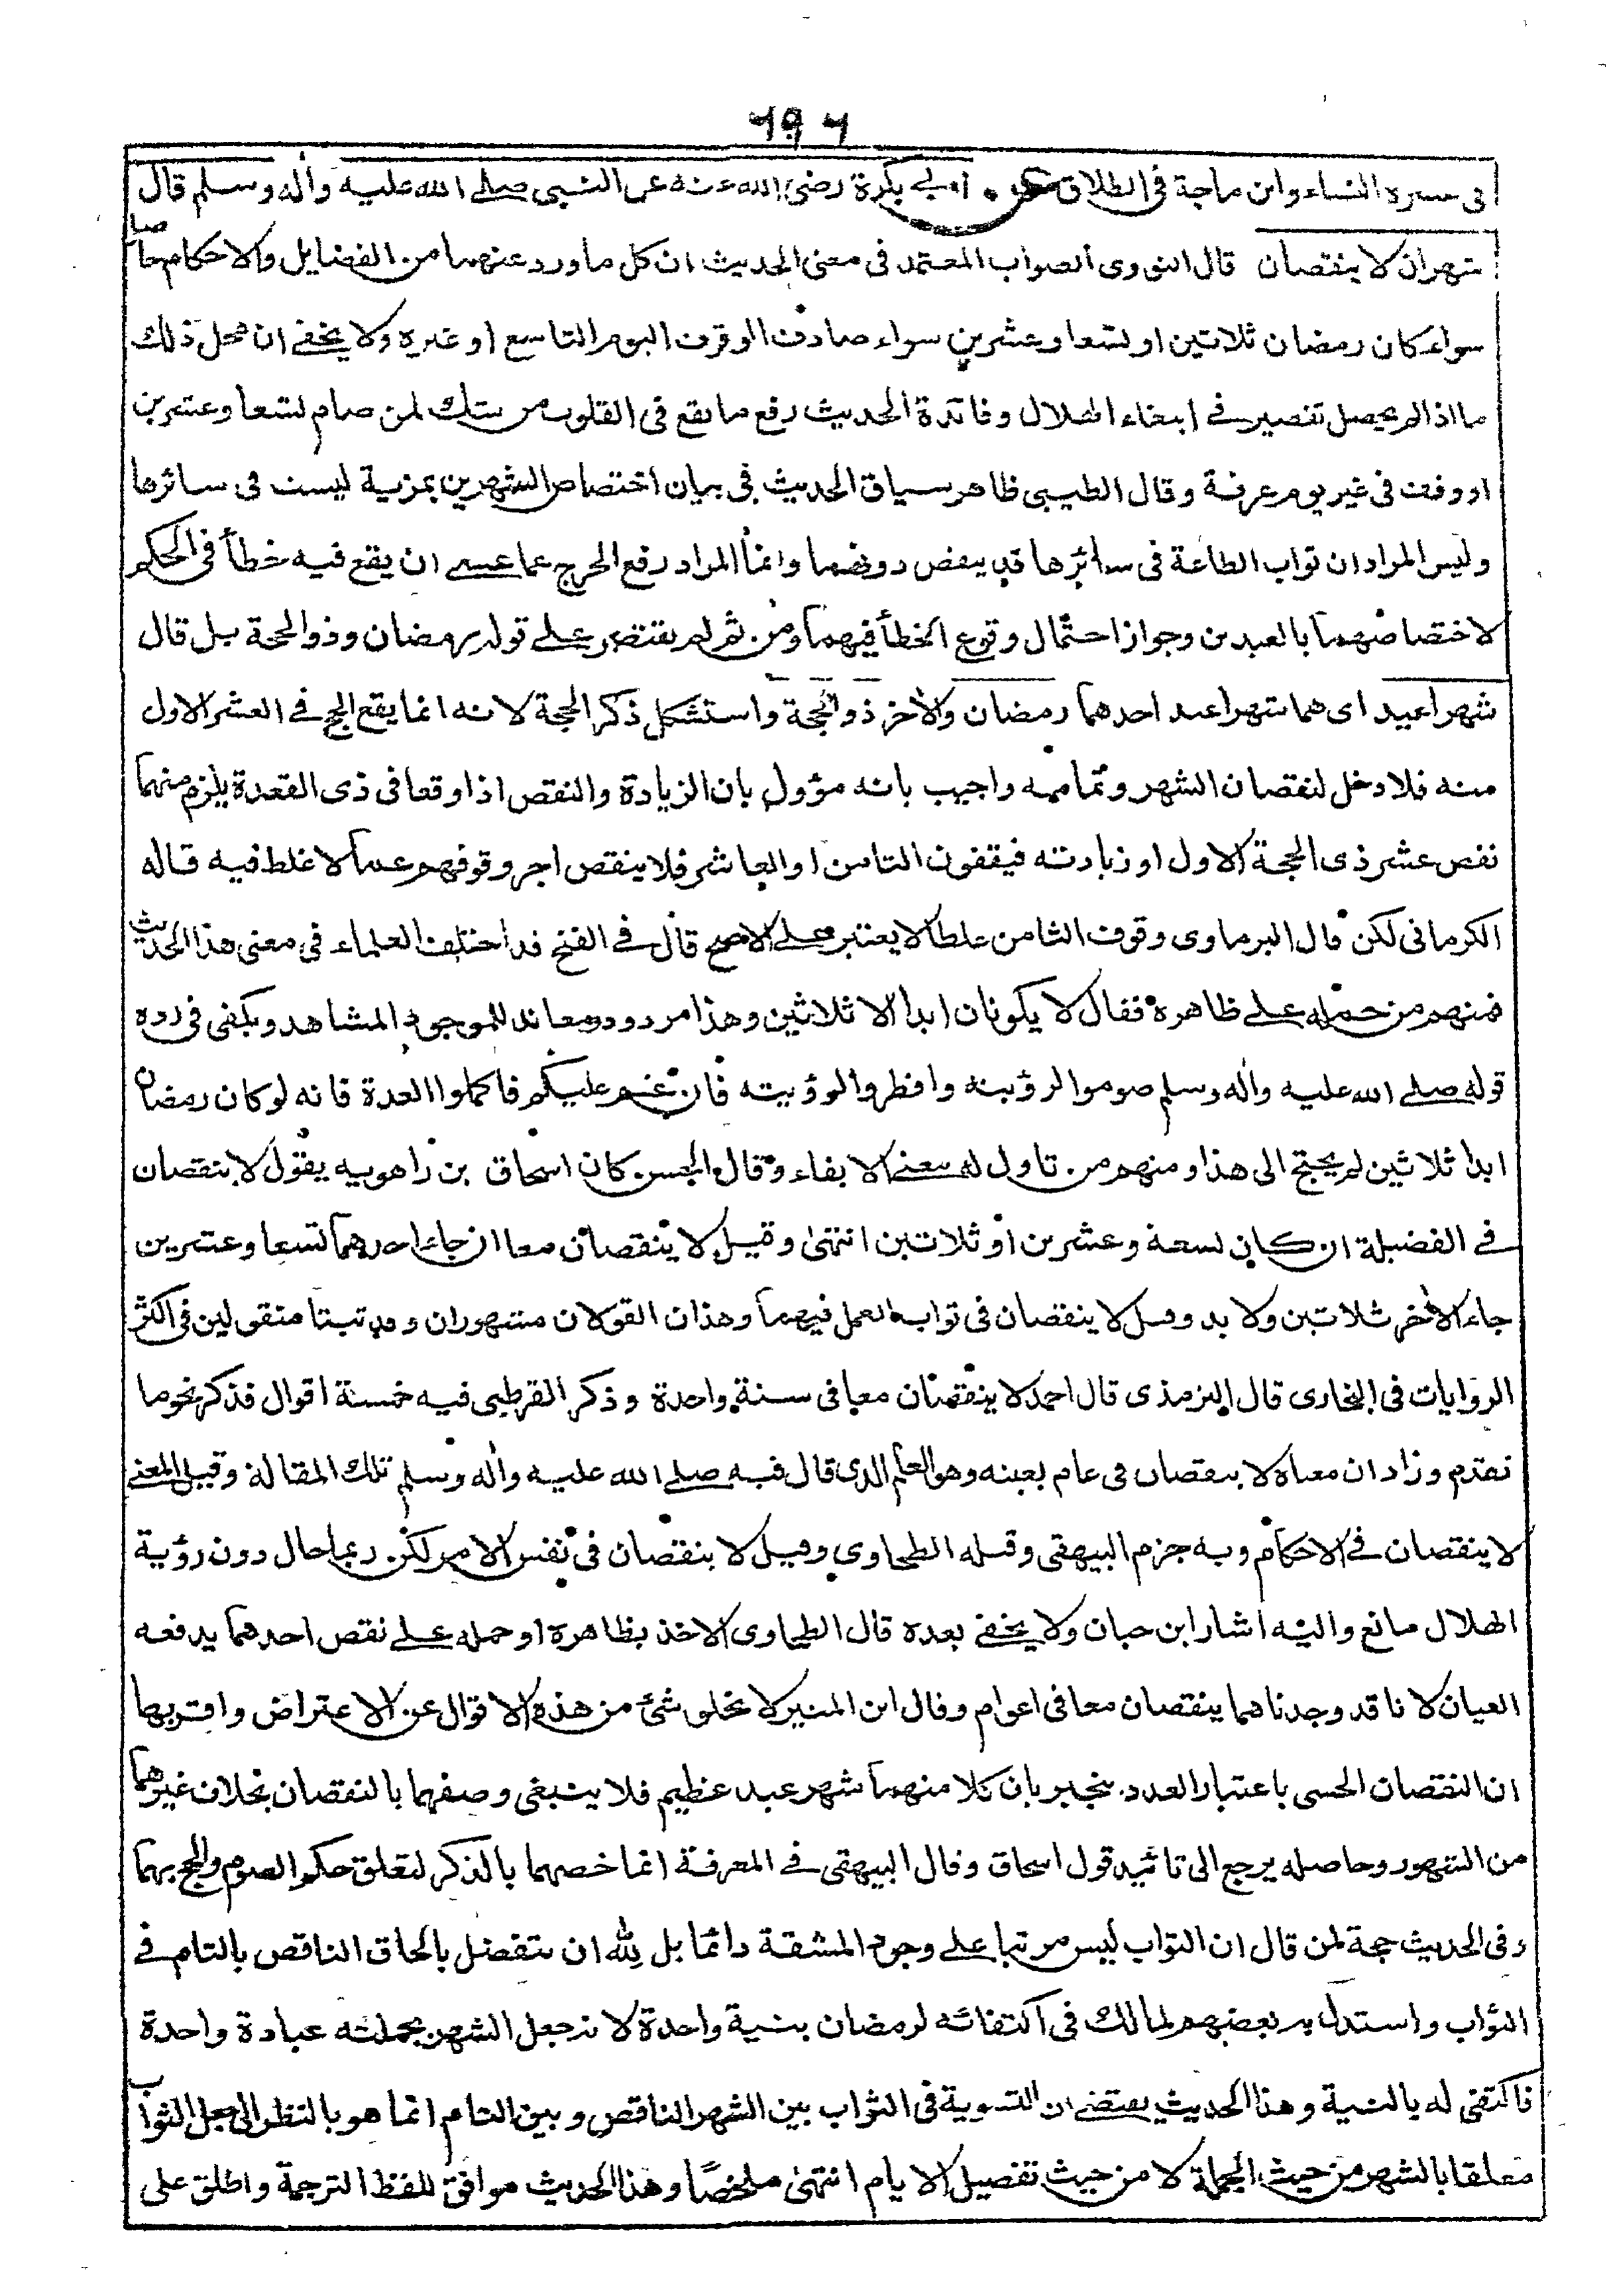 ٦٩٦
فى عشرة النساء وابن ماجة فى الطلاق عن ابى بكرة رضى الله عنه عن النبى صلى الله عليه وأله وسلم قال
شهران لا ينقصان قال النووى الصواب المعتمد فى معنى الحديث ان كل ما ورد عنهما من الفضايل والاحكام حاصل
سواء كان رمضان ثلاثين او تسعا وعشرين سواء صادف الوقوف اليوم التاسع او غيره ولا يخفى ان محل ذلك
ما اذا لم يحصل تقصير فى ابتغاء الهلال وفائدة الحديث رفع ما يقع فى القلوب من شك لمن صام تسعا وعشرين
او وقف فى غير يوم عرفة وقال الطيبى ظاهر سياق الحديث فى بيان اختصاص الشهرين بمزية ليست فى سائرها
وليس المراد ان ثواب الطاعة فى سائرها قد ينقص دونهما وانما المراد رفع الحرج عما عسى ان يقع فيه خطأ فى الحكم
لاختصاصهما بالعيدين وجواز احتمال وقوع الخطأ فيهما ومن ثم لم يقتصر على قوله رمضان وذو الحجة بل قال
شهرا عيد اى هما شهرا عيد احدهما رمضان والأخر ذو الحجة واستشكل ذكر الحجة لانه انما يقع الحج فى العشر الاول
منه فلا دخل لنقصان الشهر وتمامه واجيب بانه مؤول بان الزيادة والنقص اذا وقعا فى ذى القعدة يلزم منهما
نقص عشر ذى الحجة الاول او زيادته فيقفون الثامن او العاشر فلا ينقص اجر وقوفهم عما لا غلط فيه قاله
الكرمانى لكن قال البرماوى وقوف الثامن غلطا لا يعتبر على الاصح قال فى الفتح قد اختلف العلماء فى معنى هذا الحديث
فمنهم من حمله على ظاهره فقال لا يكونان ابدا الا ثلاثين وهذا مردود معاند للموجود المشاهد ويكفى فى رده
قوله صلى الله عليه وأله وسلم صوموا لرؤيته وافطروا لرؤيته فان غم عليكم فاكملوا العدة فانه لو كان رمضان
ابدا ثلاثين لم يحتج الى هذا ومنهم من تاول له معنى لايقاء وقال ابو الحسن كان اسحاق بن راهويه يقول لا ينقصان
فى الفضيلة ان كان تسعة وعشرين او ثلاثين انتهى وقيل لا ينقصان معا ان جاء احدهما تسعا وعشرين
جاء الأخر ثلاثين ولا بد وقيل لا ينقصان فى ثواب العمل فيهما وهذان القولان مشهوران وقد ثبتا منقولين فى اكثر
الروايات فى البخارى قال الترمذى قال احمد لا ينقصان معا فى سنة واحدة وذكر القرطبى فيه خمسة اقوال فذكر نحو ما
تقدم وزاد ان معناه لا ينقصان فى عام بعينه وهو العام الذى قال فيه صلى الله عليه وأله وسلم تلك المقالة وقيل المعنى
لا ينقصان فى الاحكام وبه جزم البيهقى وقبله الطحاوى وقيل لا ينقصان فى نفس الامر لكن ربما حال دون رؤية
الهلال مانع واليه اشار ابن حبان ولا يخفى بعده قال الطحاوى الاخذ بظاهره او حمله على نقص احدهما يدفعه
العيان لانا قد وجدناهما ينقصان معا فى اعوام وقال ابن المنير لا يخلو شئ من هذه الاقوال عن الاعتراض واقربها
ان النقصان الحسى باعتبار العدد ينجبر بان كلا منهما شهر عيد عظيم فلا ينبغى وصفهما بالنقصان بخلاف غيرهما
من الشهور وحاصله يرجع الى تائيد قول اسحاق وقال البيهقى فى المعرفة انما خصهما بالذكر لتعلق حكم الصوم والحج بهما
وفى الحديث حجة لمن قال ان الثواب ليس مرتبا على وجود المشقة دائما بل لله ان يتفضل بالحاق الناقص بالتام فى
الثواب واستدل به بعضهم لمالك فى اكتفائه لرمضان بنية واحدة لانه جعل الشهر بجملته عبادة واحدة
فاكتفى له بالنية وهذا الحديث يقتضى ان التسوية فى الثواب بين الشهر الناقص وبين التام انما هو بالنظر الى جعل الثواب
معلقا بالشهر من حيث الجملة لا من حيث تفصيل الايام انتهى ملخصا وهذا الحديث موافق للفظ الترجمة واطلق على